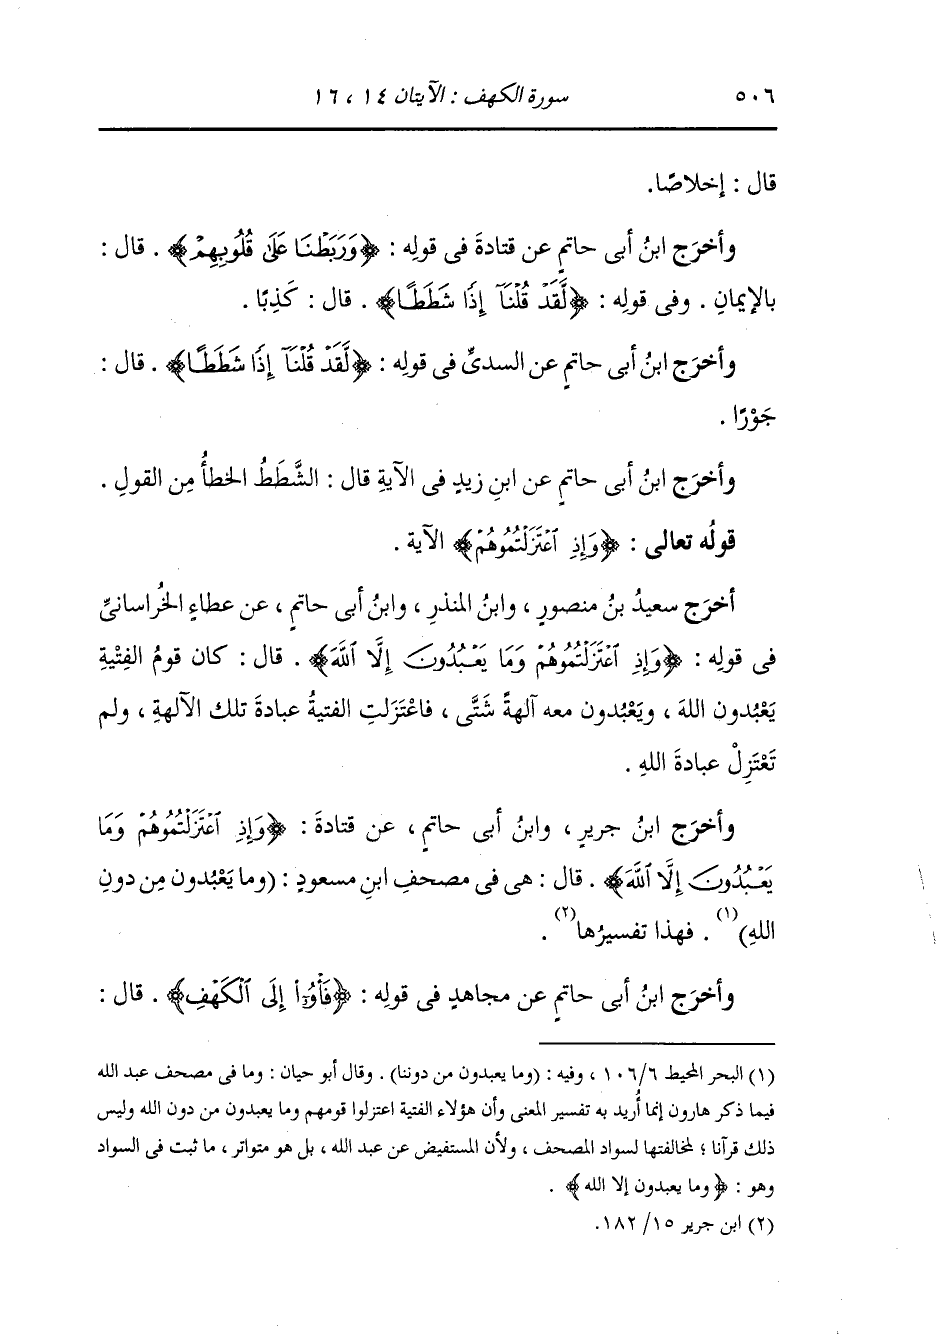 ٥٠٦ سورة الكهف : الآيتان ١٤ ، ١٦
قال : إخلاصًا.
وأخرَج ابنُ أبى حاتمٍ عن قتادةَ فى قولِه : ﴿وَرَبَطْنَا عَلَىٰ قُلُوبِهِمْ﴾ . قال :
بالإيمانِ . وفى قولِه : ﴿لَّقَدْ قُلْنَآ إِذًا شَطَطًا﴾ . قال : كَذِبًا .
وأخرَج ابنُ أبى حاتمٍ عن السدىِّ فى قولِه : ﴿لَّقَدْ قُلْنَآ إِذًا شَطَطًا﴾ . قال :
جَوْرًا .
وأخرَج ابنُ أبى حاتمٍ عن ابنِ زيدٍ فى الآيةِ قال : الشَّطَطُ الخطأُ مِن القولِ .
قولُه تعالى : ﴿وَإِذِ ٱعْتَزَلْتُمُوهُمْ﴾ الآية .
أخرَج سعيدُ بنُ منصورٍ ، وابنُ المنذرِ ، وابنُ أبى حاتمٍ ، عن عطاءٍ الخُراسانىِّ
فى قولِه : ﴿وَإِذِ ٱعْتَزَلْتُمُوهُمْ وَمَا يَعْبُدُونَ إِلَّا ٱللَّهَ﴾ . قال : كان قومُ الفِتْيةِ
يَعْبُدون اللهَ ، ويَعْبُدون معه آلهةً شَتَّى ، فاعْتَزَلتِ الفتيةُ عبادةَ تلك الآلهةِ ، ولم
تَعْتَزِلْ عبادةَ اللهِ .
وأخرَج ابنُ جريرٍ ، وابنُ أبى حاتمٍ ، عن قتادةَ : ﴿وَإِذِ ٱعْتَزَلْتُمُوهُمْ وَمَا
يَعْبُدُونَ إِلَّا ٱللَّهَ﴾ . قال : هى فى مصحفِ ابنِ مسعودٍ : (وما يَعْبُدون مِن دونِ
اللهِ)(١) . فهذا تفسيرُها(٢) .
وأخرَج ابنُ أبى حاتمٍ عن مجاهدٍ فى قولِه : ﴿فَأْوُۥٓاْ إِلَى ٱلْكَهْفِ﴾ . قال :
(١) البحر المحيط ٦/ ١٠٦ ، وفيه : (وما يعبدون من دوننا) . وقال أبو حيان : وما فى مصحف عبد الله
فيما ذكر هارون إنما أُريد به تفسير المعنى وأن هؤلاء الفتية اعتزلوا قومهم وما يعبدون من دون الله وليس
ذلك قرآنا ؛ لمخالفتها لسواد المصحف ، ولأن المستفيض عن عبد الله ، بل هو متواتر ، ما ثبت فى السواد
وهو : ﴿وما يعبدون إلا الله﴾ .
(٢) ابن جرير ١٥/ ١٨٢.